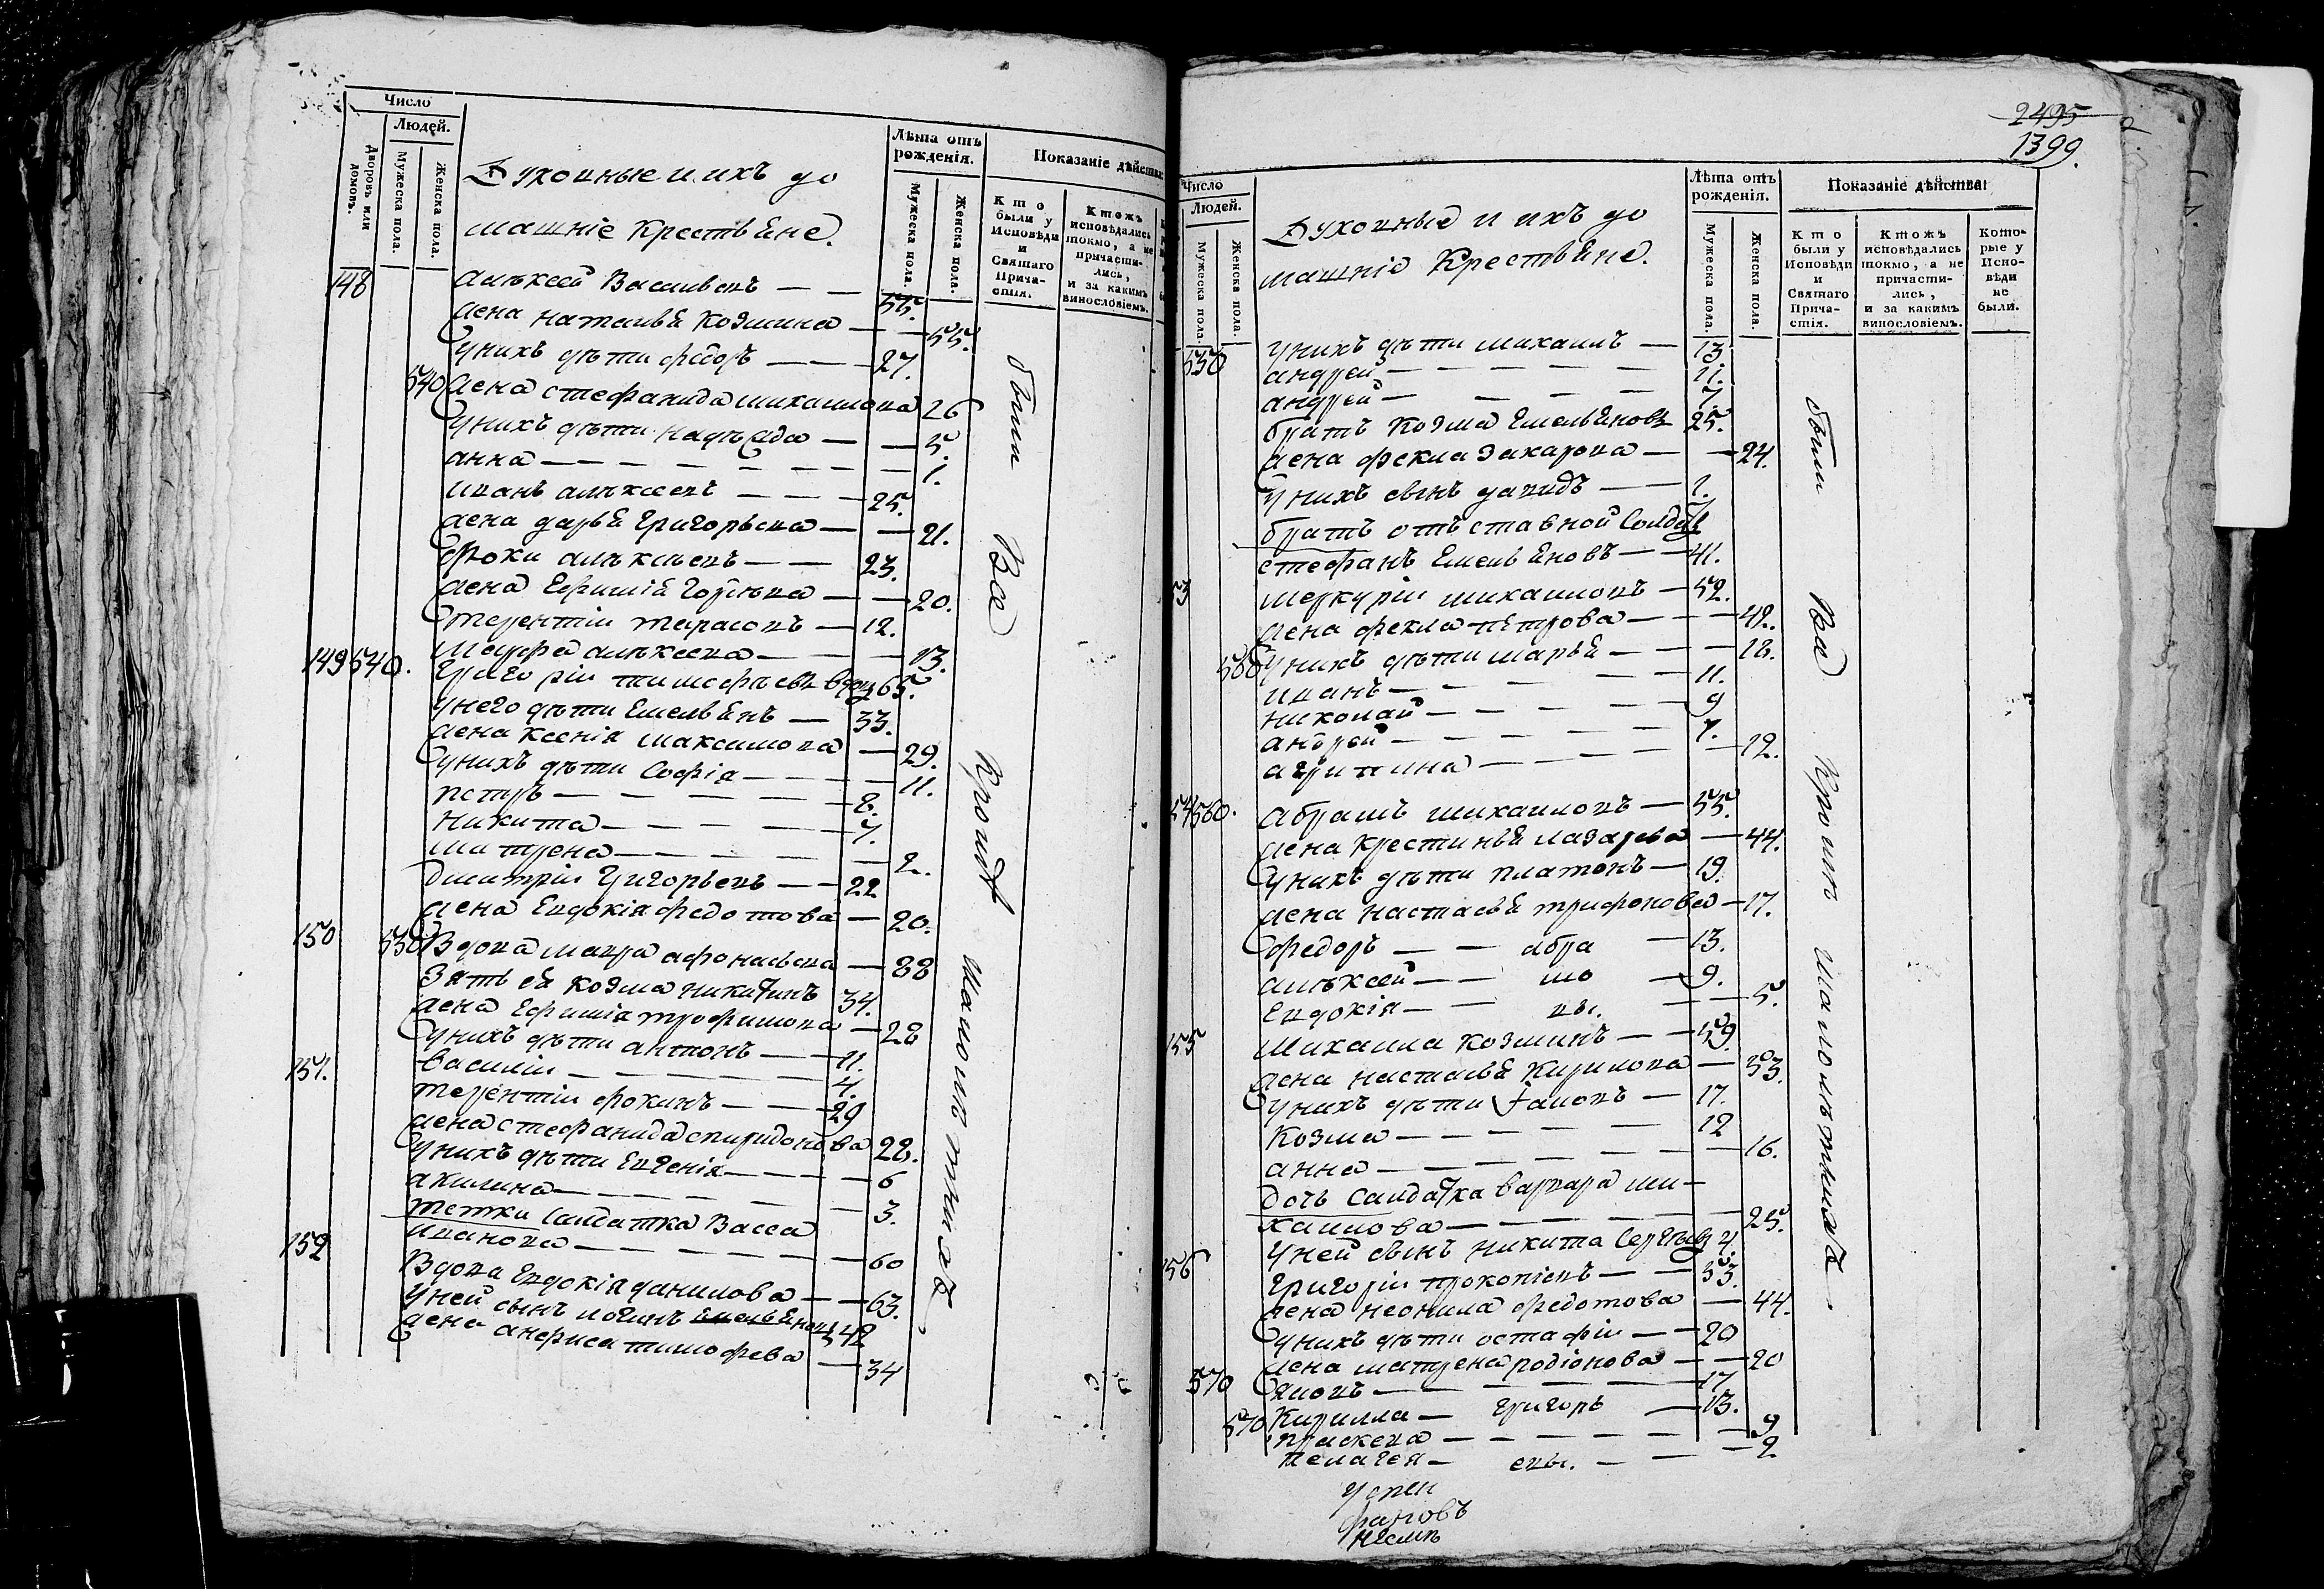 Число
Людей.
Дворовъ или домовъ.
Мужеска пола.
Женска пола.
Духовные и ихъ до
машніе Крестьяне.
Лѣта отъ рожденія.
Мужеска пола.
Женска пола.
Показаніе дѣйства
Кто были у Исповѣди и Святаго Прича-стія.
Ктожъ исповѣдались токмо, а не причасти-лись, и за какимъ винословіемъ.
148 Алѣксей Васильевъ — — 55.
жена наталья Козмина — — 55.
Унихъ дѣти федоръ — — 27.
540 жена стефанида михаилова 26
Унихъ дѣти надѣжда — — 5.
анна — — — 1.
иванъ алѣксеевъ — — 25.
жена дарья Григорьева — — 21.
фока алѣксѣевъ — — 23.
жена Ефимія — — 20.
терентіи тарасовъ — 12.
Марфа алѣксеева — — 13.
149 540. Григоріи тимофѣевъ вдовъ 65.
Унего дѣти Емельянъ — 33.
жена Ксенія максимова — 29.
Унихъ дѣти Софія — — 11.
петръ — — — 8.
никита — — — 7.
матрена — — — 2.
Димитріи Григорьевъ — — 22
жена Евдокія федотова — 20.
150 550 Вдова мавра афонасьева — 88
Зять ея козма никитинъ 34.
жена Ефимія трофимова — 28
Унихъ дѣти антонъ — — 11.
Василіи — — — 4.
151. терентіи фокинъ — — 29
жена стефанида спиридонова 28.
Унихъ дѣти Евгенія — — 6
акилина — — — 3.
тетка Салдатка Васса
иванова — — — 60
152 Вдова Евдокія данилова — — 63.
Уней сынъ логинъ емельяновъ 42
жена анфиса тимофеева — 34
были Вси Кромѣ малолѣтныхъ.
2495
1399.
Число
Людей.
Мужеска пола.
Женска пола.
Духовные и ихъ до
машніе Крестьяне.
Лѣта отъ рожденія.
Мужеска пола.
Женска пола.
Показаніе дѣйства
Кто были у Исповѣди и Святаго Прича-стія.
Ктожъ исповѣдались токмо, а не причасти-лись, и за какимъ винословіемъ.
Кото-рые у Испо-вѣди не были.
550 Унихъ дѣти михаилъ — 13
андрей — — — 11.
андрей — — — 7.
братъ Козма Емельяновъ 25.
жена фекла Захарова — — 24.
Унихъ сынъ давидъ — — 1.
братъ отъставной Солдатъ
стефанъ Емельяновъ — — 41.
53 меркуріи михаиловъ — 52.
жена фекла петрова — — 42.
560 Унихъ дѣти марья — — 18.
иванъ — — — 11.
николай — — — 9
андрей — — — 7.
агрипина — — — 12.
54 560. Абрамъ михаиловъ — 55.
жена Крестинья лазарева — 44.
Унихъ дѣти платонъ — 19.
жена настасья трифонова — 17.
федоръ — — абра — 13.
алѣксей — — мо — 9.
Евдокія — — вы. — — 5.
155 Михаила козминъ — — 59.
жена настасья Кирилова — 53.
Унихъ дѣти Іаковъ — 17.
Козма — — — 12
анна — — — 16.
дочь Салдатка варвара ми-
хаилова — — — 25.
Уней сынъ никита Сергѣевъ 4.
156 Григоріи прокопіевъ — — 53.
жена неонила федотова — 44.
Унихъ дѣти остафіи — — 20
жена матрена родіонова — — 20
570 Яковъ — — — 17
Кирилла — григорь — 13.
570 праскева — — — 9
пелагея — евы. — — 2.
были Вси Кромѣ малолѣтныхъ.